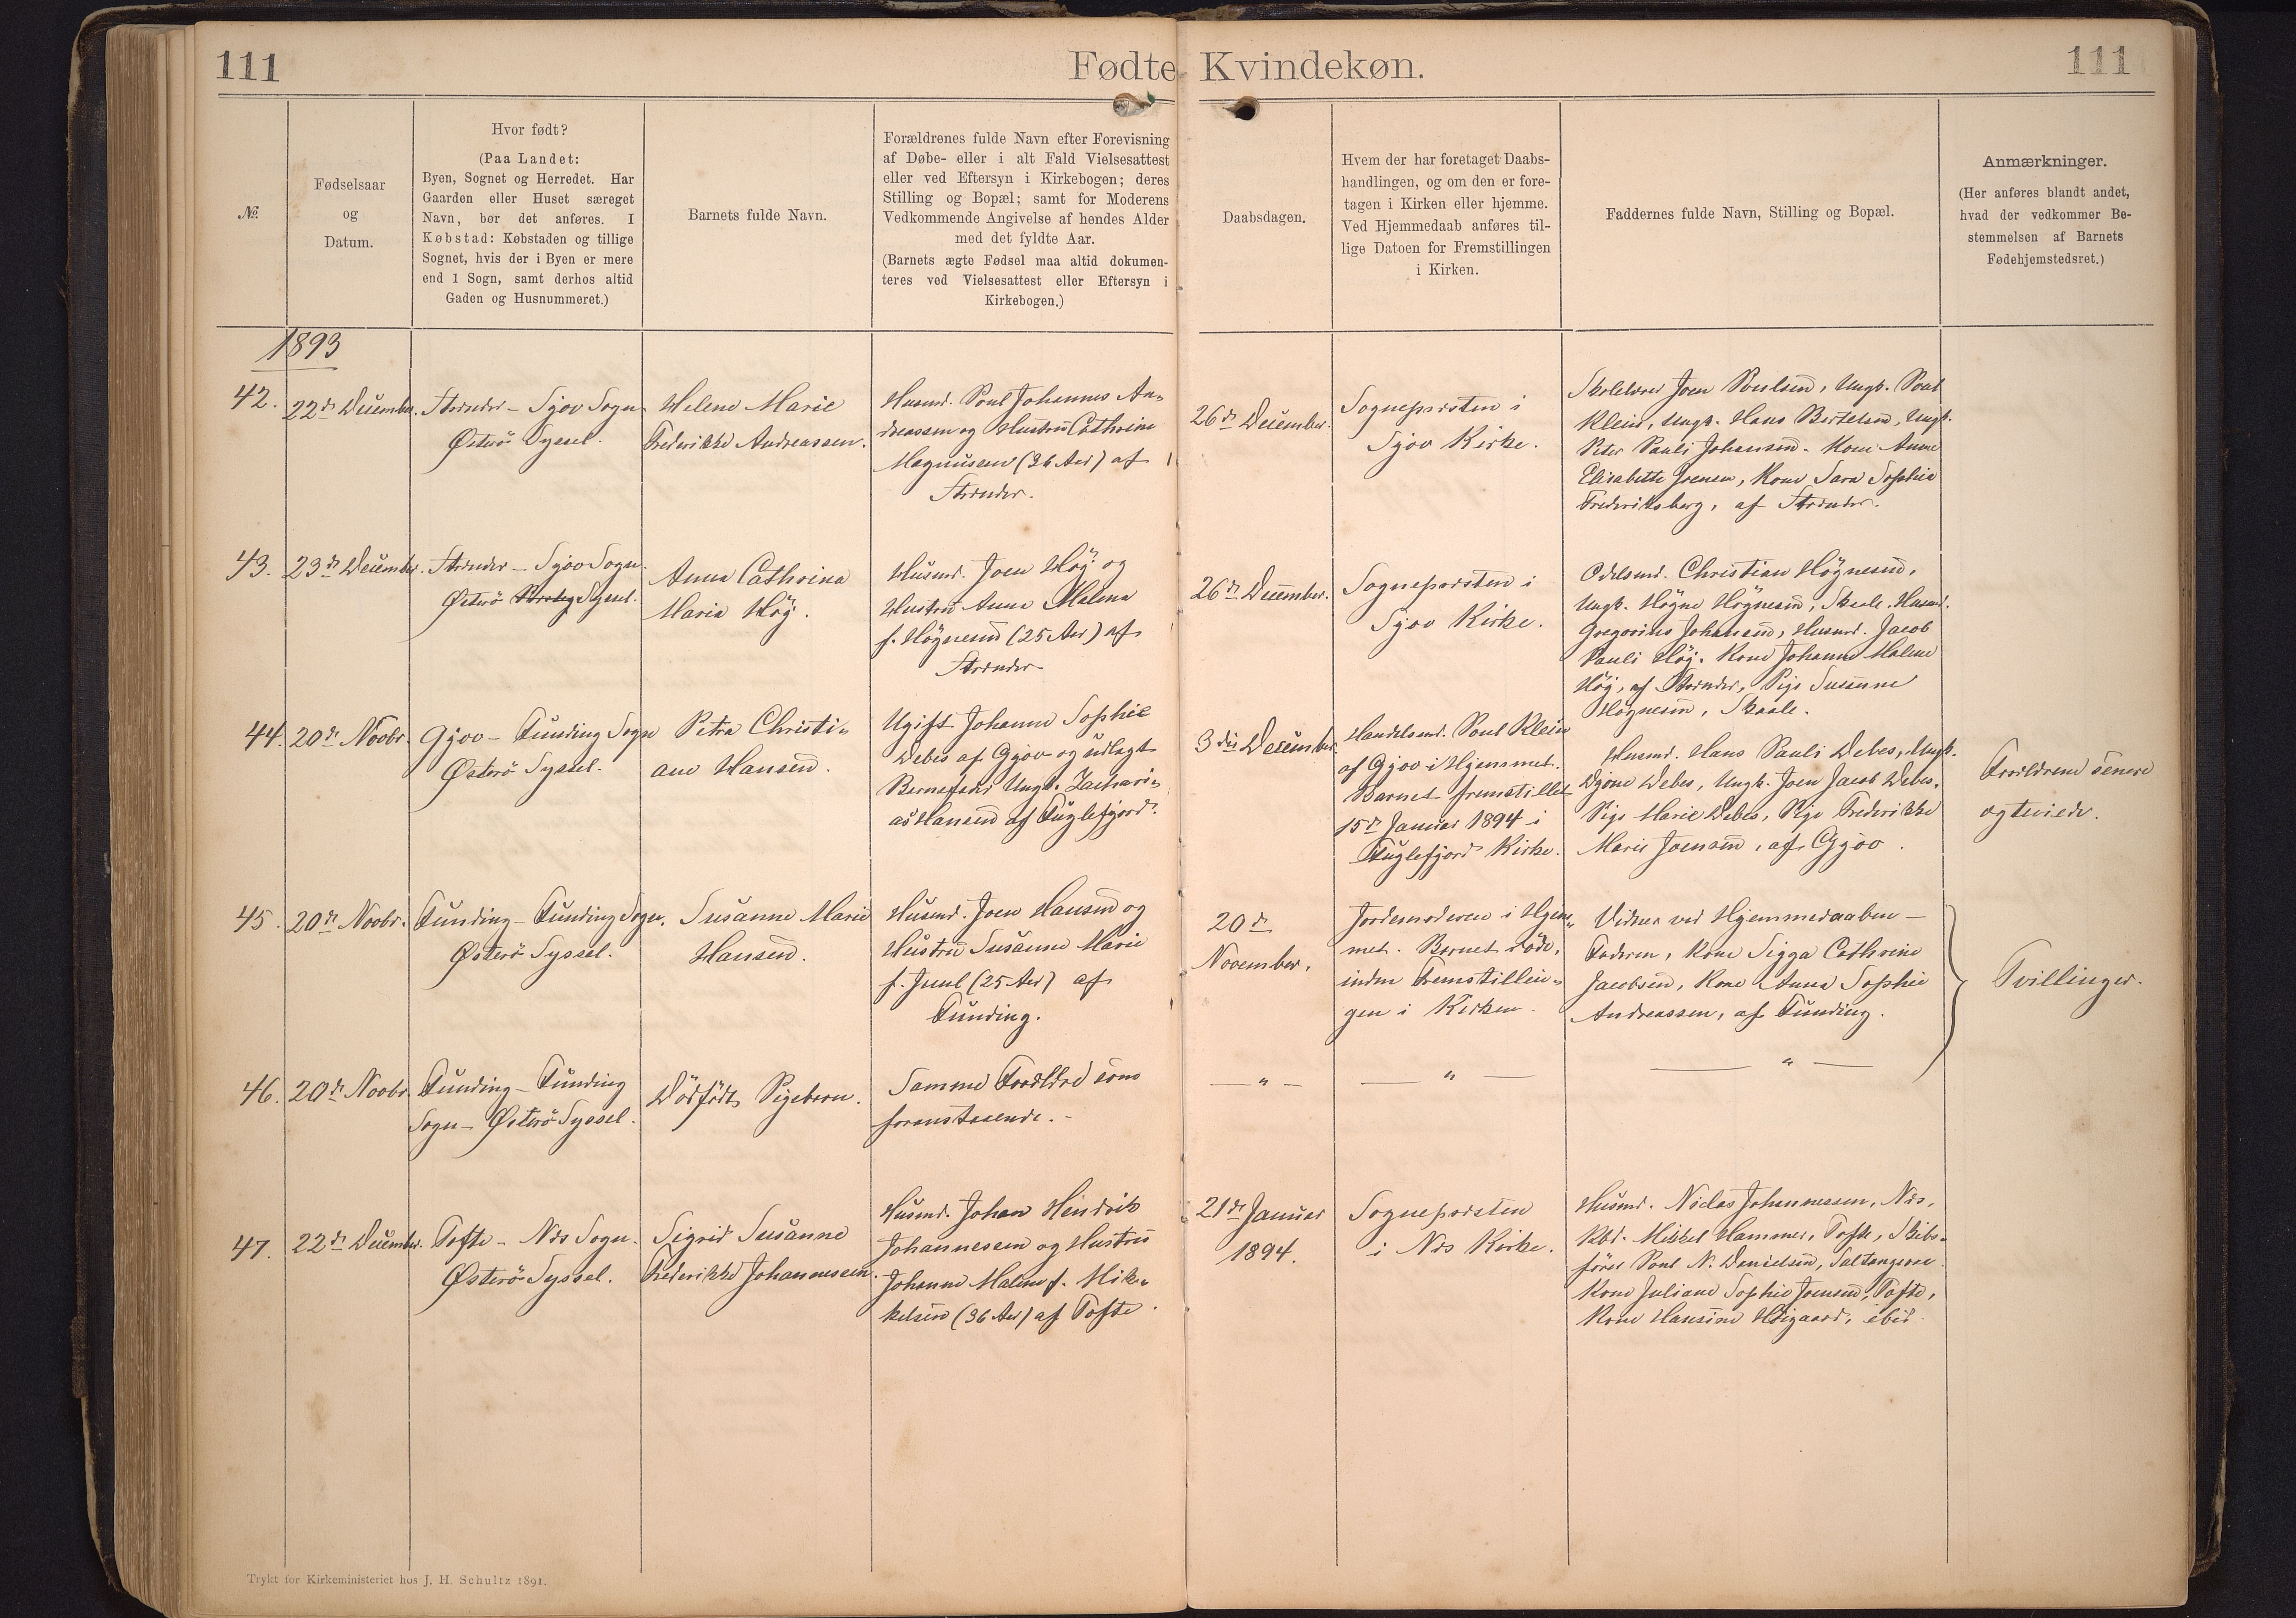 111
Fødte Kvindekøn.
111
№.
Fødselsaar
og
Datum.
Hvor født?
(Paa Landet:
Byen, Sognet og Herredet. Har
Gaarden eller Huset særeget
Navn, bør det anføres. I
Købstad: Købstaden og tillige
Sognet, hvis der i Byen er mere
end 1 Sogn, samt derhos altid
Gaden og Husnummeret.)
Barnets fulde Navn.
Forældrenes fulde Navn efter Forevisning
af Døbe- eller i alt Fald Vielsesattest
eller ved Eftersyn i Kirkebogen; deres
Stilling og Bopæl; samt for Moderens
Vedkommende Angivelse af hendes Alder
med det fyldte Aar.
(Barnets ægte Fødsel maa altid dokumen-
teres ved Vielsesattest eller Eftersyn i
Kirkebogen.)
Daabsdagen.
Hvem der har foretaget Daabs-
handlingen, og om den er fore-
tagen i Kirken eller hjemme.
Ved Hjemmedaab anføres til-
lige Datoen for Fremstillingen
i Kirken.
Faddernes fulde Navn, Stilling og Bopæl.
Anmærkninger.
(Her anføres blandt andet,
hvad der vedkommer Be-
stemmelsen af Barnets
Fødehjemstedsret.)
1893
42.
22de December.
Strænder - Sjov Sogn
Østerö Syssel.
Helene Marie
Frederikke Andreassen.
Husmd. Poul Johannes An-
dreassen og Hustru Cathrine
Magnussen (36 Aar) af
Strænder.
26de December.
Sognepræsten i
Sjov Kirke.
Skolelærer Joen Poulsen, Ungk. Poul
Klein, Ungk. Hans Bertelsen, Ungk.
Peter Pauli Johansen. Kone Anne
Elisabeth Joensen, Kone Sara Sophie
Frederiksberg, af Strænder.
43.
23de December.
Strænder - Sjov Sogn.
Østerö Syssel.
Anna Cathrina
Maria Høj.
Husmd. Joen Høj og
Hustru Anna Malena
f. Högnesen (25 Aar) af
Strænder
26de December.
Sognepræsten i
Sjov Kirke.
Odelsmd. Christian Högnesen,
Ungk. Högne Högnesen, Skaale. Husmd.
Gregorius Johansen, Husmd. Jacob
Pauli Høj. Kone Johanne Malene
Høj, af Strænder, Pige Susanne
Högnesen, Skaale.
44.
20de Novbr.
Gjov - Funding Sogn
Østerö Syssel.
Petra Christi-
ane Hansen.
Ugift Johanne Sophie
Debes af Gjov og udlagt
Barnefader Ungk. Zachari-
as Hansen af Fuglefjord.
3die December
Handelsmd. Poul Klein
af Gjov i Hjemmet.
Barnet fremstillet
15de Januar 1894 i
Fuglefjord Kirke.
Husmd. Hans Pauli Debes, Ungk.
Djone Debes, Ungk. Joen Jacob Debes.
Pige Marie Debes, Pige Frederikke
Marie Joensen, af Gjov.
Forældrene senere
ægteviede.
45.
20de Novbr.
Funding - Funding Sogn.
Østerö Syssel.
Susanne Marie
Hansen.
Husmd. Joen Hansen og
Hustru Susanne Marie
f. Juul (25 Aar) af
Funding.
20de
November.
Jordemoderen i Hjem-
met. Barnet døde,
inden Fremstillin-
gen i Kirken.
Vidner ved Hjemmedaaben -
Faderen, Kone Sigga Cathrine
Jacobsen, Kone Anna Sophie
Andreassen, af Funding.
Tvillinger.
46.
20de Novbr.
Funding - Funding
Sogn - Østerö Syssel.
Dödfödt Pigebarn.
Samme Forældre som
foranstaaende. -
— " —
— " —
— " —
47.
22de December.
Tofte - Næs Sogn.
Østerö Syssel.
Sigrid Susanne
Frederikke Johannessen.
Husmd. Johan Hendrik
Johannessen og Hustru
Johanne Malene f. Mik-
kelsen (36 Aar) af Tofte.
21de Januar
1894.
Sognepræsten
i Næs Kirke.
Husmd. Niclas Johannessen, Næs,
Kbd. Mikkel Hammer, Tofte, Skibs-
förer Poul N. Danielsen, Saltangerne
Kone Juliane Sophie Joensen, Tofte,
Kone Hansine Höigaard, ibid.
Trykt for Kirkeministeriet hos J. H. Schultz 1891.